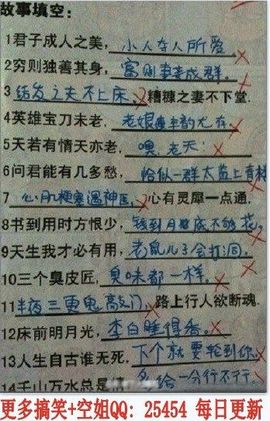 故事填空:
1君子成人之美,小人夺人所爱
2穷则独善其身,富则妻妾成群。
3结发之夫不上床,糟糠之妻不下堂.
4英雄宝刀未老,老娘半韵尤存。
5天若有情天亦老,噢老天
6问君能有几多愁,恰似一群太监上青楼
7心肌梗塞遇神医,心有灵犀一点通,
8书到用时方恨少,钱到月底不够花,
9天生我才必有用,老鼠儿子会打洞.
10三个臭皮匠,臭味都一样。
11半夜三更鬼敲门,路上行人欲断魂.
12床前明月光,李白睡得香。
13人生自古谁无死,下个就要轮到你.
14千山万水总是 给一分行不行.
更多搞笑+空姐QQ: 25454 每日更新